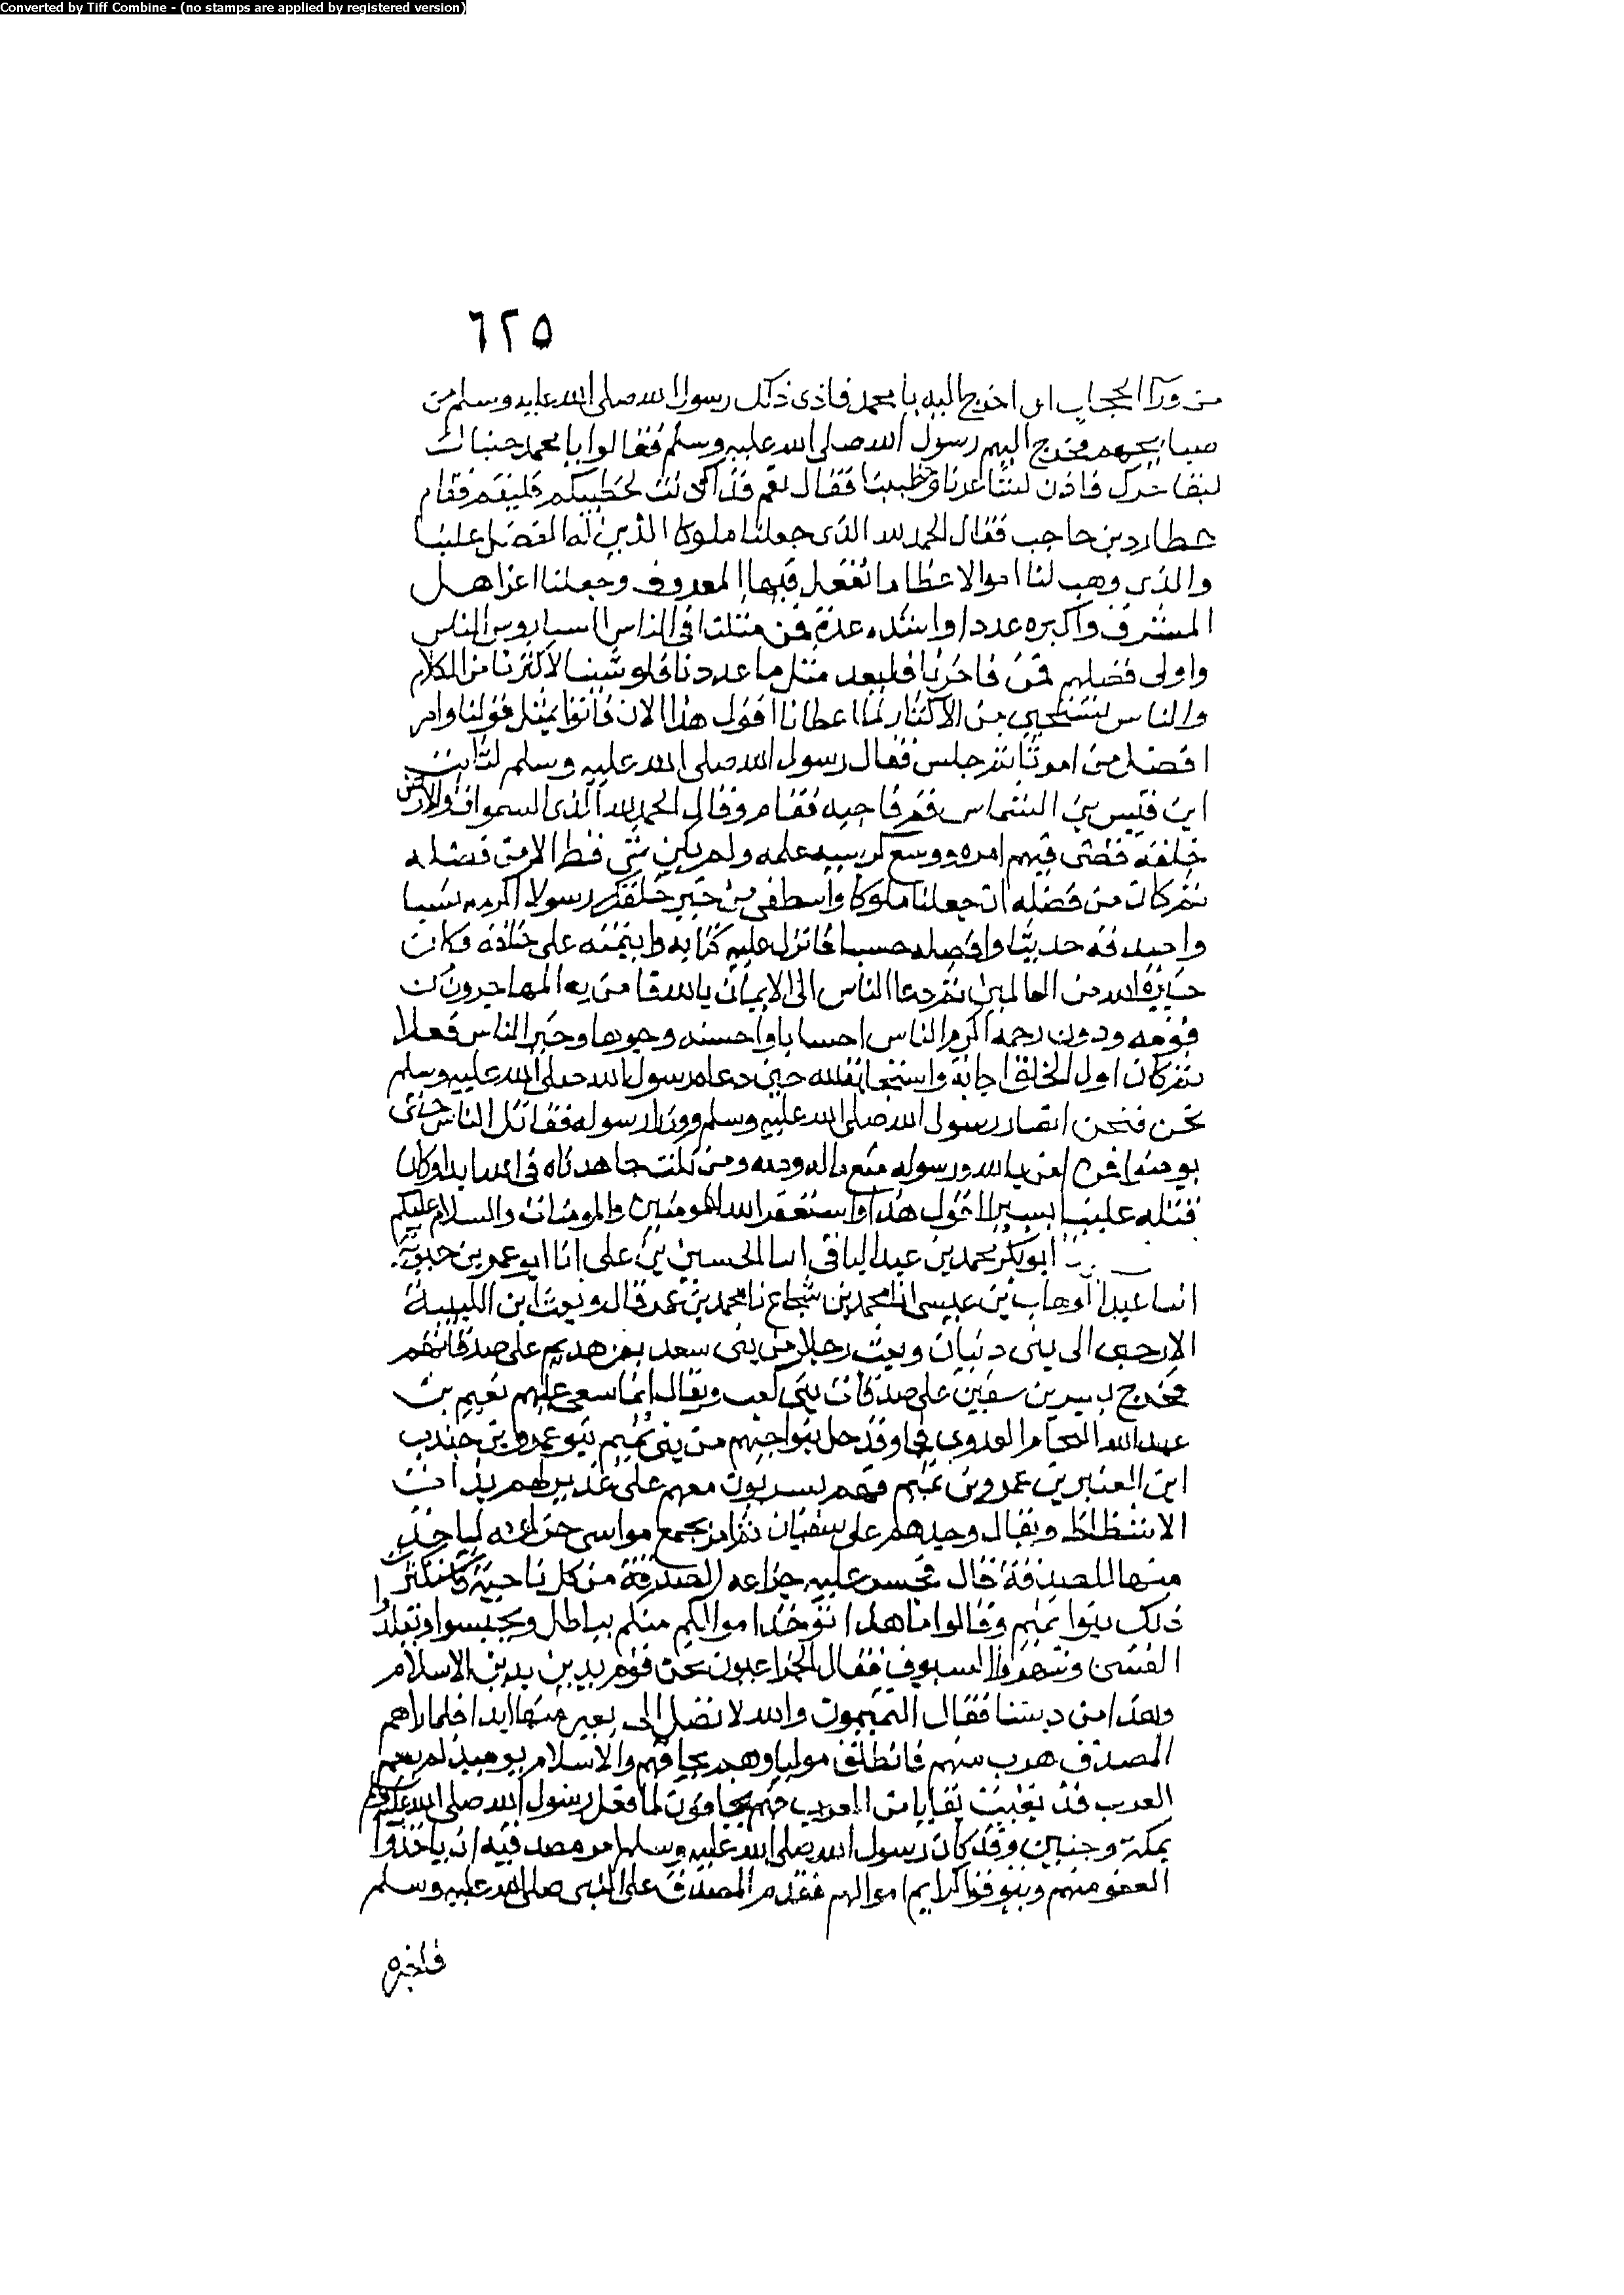 Converted by Tiff Combine - (no stamps are applied by registered version)
٦٢٥
من ورآ الحجاب ان اخرج اليه يا محمد فاذى ذلك رسول الله صلى الله عليه وسلم من
صياحهم فخرج اليهم رسول الله صلى الله عليه وسلم فقالوا يا محمد جيناك
لنفاخرك فاذن لشاعرنا وخطيبنا فقال نعم قد اذنت لخطيبكم فليقم فقام
عطارد بن حاجب فقال الحمد لله الذى جعلنا ملوكا الذى له الفضل علينا
والذى وهب لنا اموالا عظاما نفعل فيها المعروف وجعلنا اعز اهل
المشرق واكبره عددا واشده عدة فمن مثلنا فى الناس السنا روس الناس
واولى فضلهم فمن فاخرنا فليعد مثل ما عددنا فلو شينا لاكثرنا من الكلام
والناس من الاكثار لما اعطانا اقول هذا الان فاتوا بمثل قولنا وامر
افضل من امرنا ثم جلس فقال رسول الله صلى الله عليه وسلم لثابت
ابن قيس بن الشماس قم فاجبه فقام وقال الحمد لله الذى السموات والارض
خلقه قضى فيهم امره ووسع كرسيه علمه ولم يكن شى قط الا من فضله
ثم كان من فضله ان جعلنا ملوكا واصطفى من خير خلقه رسولا اكرمه نسبا
واصدقه حديثا وافضله حسبا فانزل عليه كتابه وايتمنه على خلقه فكان
خيرة الله من العالمين ثم دعا الناس الى الايمان بالله فامن به المهاجرون من
قومه وذوى رحمه اكرم الناس احسابا واحسنه وجوها وخير الناس فعلا
ثم كان اول الخلق اجابة واستجابة لله حين دعاه رسول الله صلى الله عليه وسلم
نحن فنحن انصار رسول الله صلى الله عليه وسلم ووزرا رسوله فقاتل الناس حتى
يومنوا فمن امن بالله ورسوله منع ماله ودمه ومن نكث جاهدناه فى الله ابدا وكان
قتله علينا يسيرا اقول هذا واستغفر الله للمومنين والمومنات والسلام عليكم
ابو بكر محمد بن عبد الباقى انا الحسين بن على انا ابو عمر بن حيوية
انا عبد الوهاب بن عيسى انا محمد بن شجاع نا محمد بن عمر قال وبعث ابن اللتبية
الازدى الى بنى دبيان وبعث رجلا من بنى سعد بن هديم على صدقاتهم
فخرج بسر بن سفين على صدقات بنى كعب ويقال انما سعى عليهم نعيم بن
عبد الله النحام العدوى فجا وقد حل بنواحيهم من بنى تميم بنو عمرو بن جندب
ابن العنبر بن عمرو بن تميم فهم يشربون معهم على غدير لهم بذات
الاشظاظ ويقال وجدهم على عسفان ثم امر بجمع مواشى خزاعه لياخذ
منها الصدقة قال فحشرت عليه خزاعه الصدقة من كل ناحية فاستنكرت
ذلك بنوا تميم وقالوا ما هذا تؤخذ اموالكم منكم بباطل وتجيشوا وتقلدوا
القسى وشهروا السيوف فقال الخزاعيون نحن قوم ندين بدين الاسلام
وهذا من ديننا فقال التميميون والله لا يصل الى بعير منها ابدا فلما راهم
المصدق هرب منهم فانطلق موليا وهو يخافهم والاسلام يوميذ لم يعم
العرب قد بقيت بقايا من العرب فهم يخافون لما فعل رسول الله صلى الله عليه وسلم
بمكة وحنين وقد كان رسول الله صلى الله عليه وسلم امر مصدقيه ان ياخذوا
العفو منهم ويتوقوا كرايم اموالهم فقدم المصدق على النبى صلى الله عليه وسلم
فاخبره